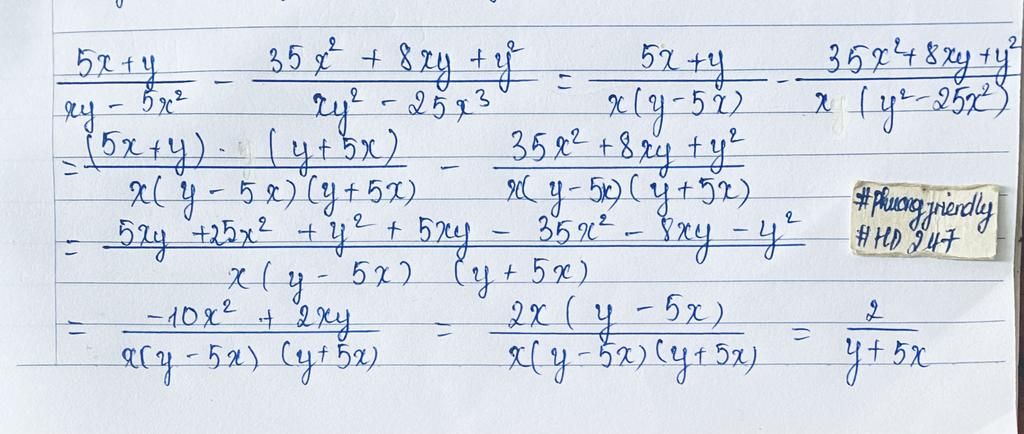 (5x+y)/(xy - 5x²) - (35x² + 8xy + y²)/(xy² - 25x³) = (5x+y)/(x(y-5x)) - (35x²+8xy+y²)/(x(y²-25x²))
= ((5x+y) · (y+5x))/(x(y-5x)(y+5x)) - (35x²+8xy+y²)/(x(y-5x)(y+5x))
= (5xy + 25x² + y² + 5xy - 35x² - 8xy - y²)/(x(y-5x)(y+5x))
#Phuongfriendly
#HD247
= (-10x² + 2xy)/(x(y-5x)(y+5x)) = (2x(y-5x))/(x(y-5x)(y+5x)) = 2/(y+5x)